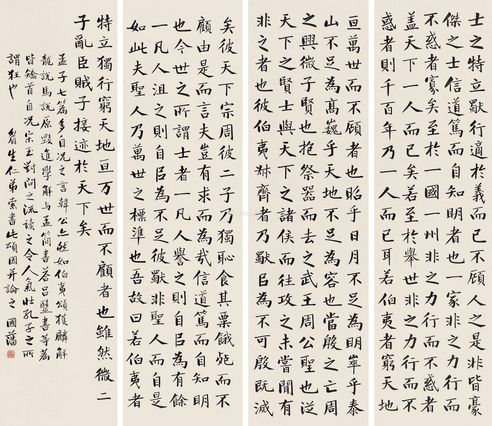 士之特立獨行適於義而已不顧人之是非皆豪
傑之士信道篤而自知明者也一家非之力行而
不惑者寡矣至於一國一州非之力行而不惑者
蓋天下一人而已矣若至於舉世非之力行而不
惑者則千百年乃一人而已耳若伯夷者窮天地
亘萬世而不顧者也昭乎日月不足為明崒乎泰
山不足為高巍乎天地不足為容也當殷之亡周
之興微子賢也抱祭器而去之武王周公聖也從
天下之賢士與天下之諸侯而往攻之未嘗聞有
非之者也彼伯夷叔齊者乃獨以為不可殷既滅
矣彼天下宗周彼二子乃獨恥食其粟餓死而不
顧由是而言夫豈有求而為哉信道篤而自知明
也今世之所謂士者一凡人譽之則自以為有餘
一凡人沮之則自以為不足彼獨非聖人而自是
如此夫聖人乃萬世之標準也吾故曰若伯夷者
特立獨行窮天地亘万世而不顧者也雖然微二
子亂臣賊子接迹於天下矣
孟子七篇多自况之言韓公亦然如伯夷頌獲麟解
龍說馬說原毀進學解与孟簡書答呂毉書等篇
皆矯首自况宋玉對問之流讀之令人氣壮孔子之所
謂狂也 眉生仁弟索書此頌因并論之 國藩